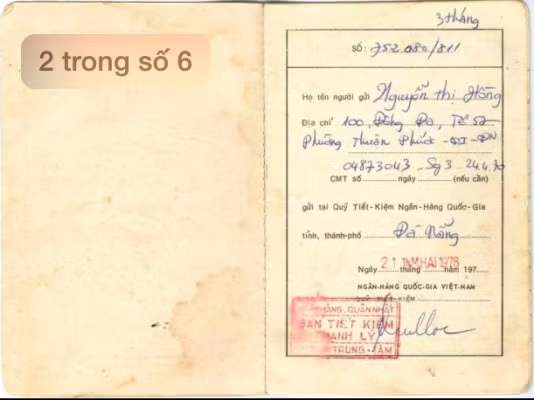 2 trong số 6
3 tháng
SỐ: 752.080/811
Họ tên người gửi Nguyễn thị Hồng
Địa chỉ 100, Đống Đa, Tổ 57
Phường Thuận Phước - QI - ĐN
04873043 Sg 3 24.4.70
CMT số ngày (nếu cần)
gửi tại Quỹ Tiết-Kiệm Ngân-Hàng Quốc-Gia
tỉnh, thành-phố Đà Nẵng
Ngày 21 tháng HAI 1976 năm 197
NGÂN-HÀNG QUỐC-GIA VIỆT-NAM
QUỸ TIẾT-KIỆM
HÀNG, QUẬN NHẤT
BAN TIẾT KIỆM
ANH LÝ
TRUNG-TÂM